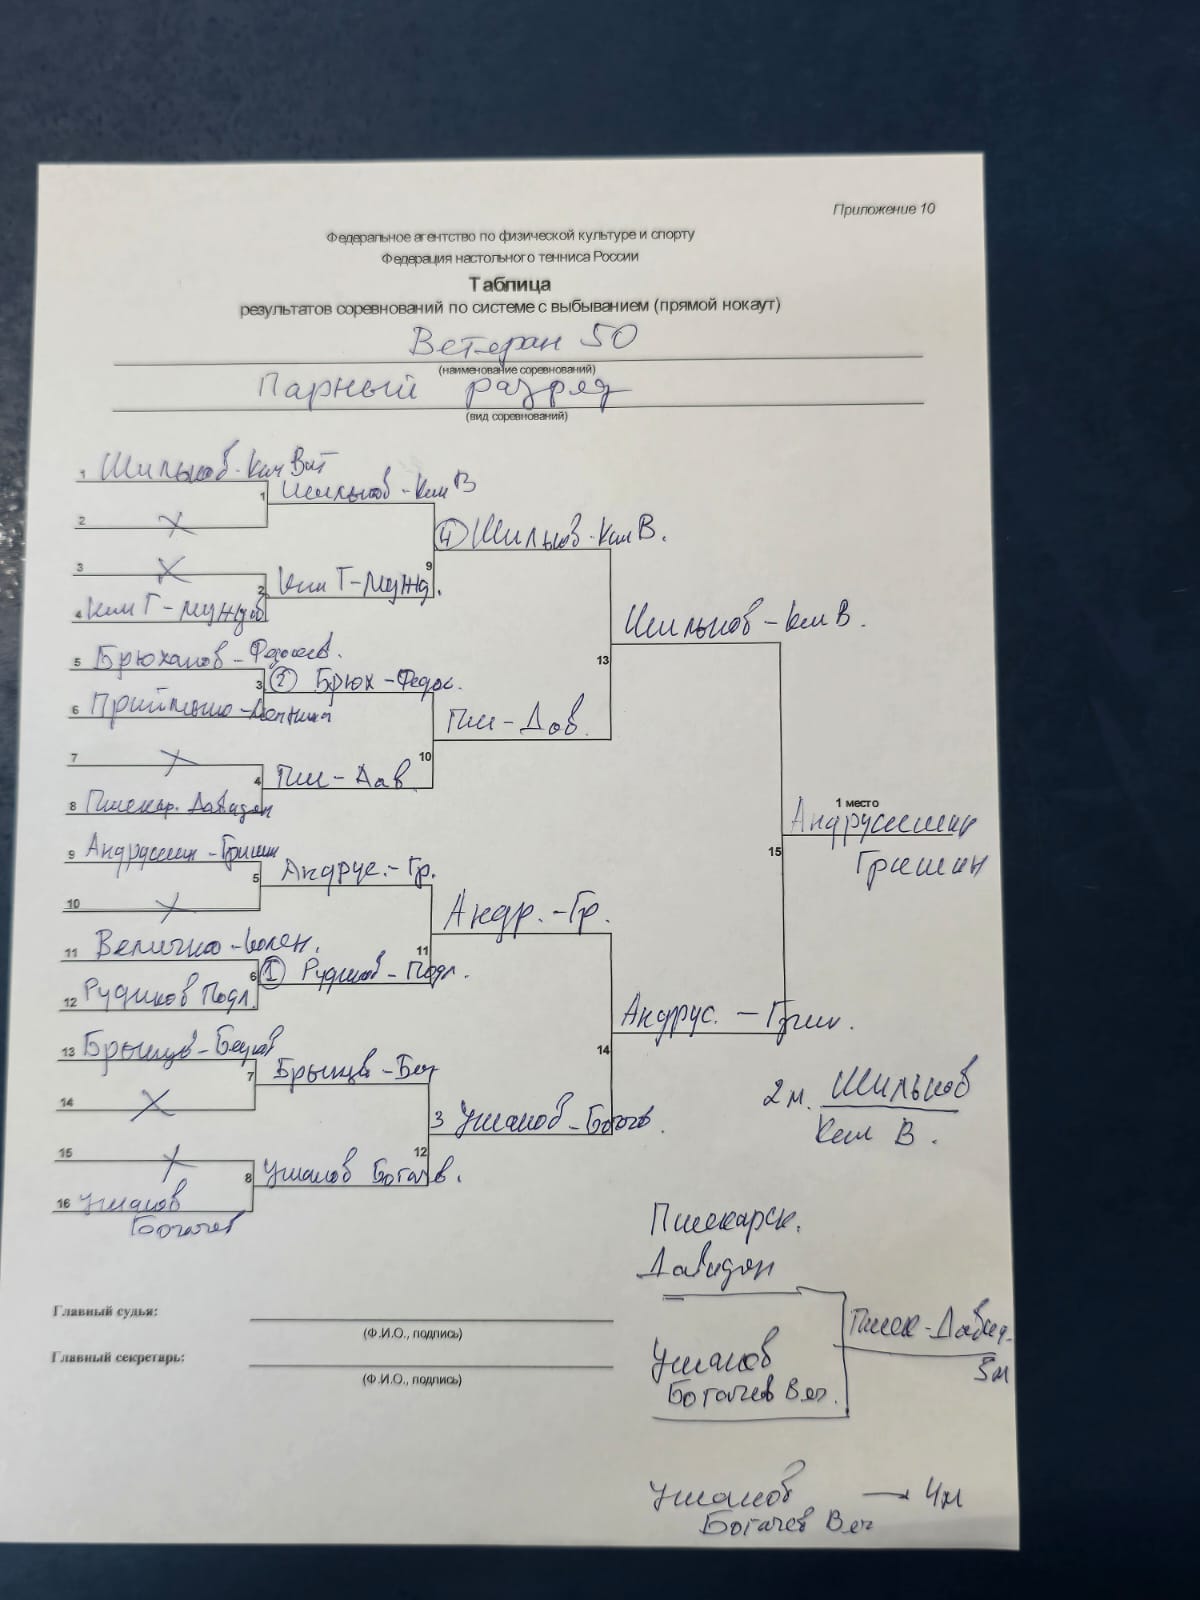 Приложение 10
Федеральное агентство по физической культуре и спорту
Федерация настольного тенниса России
Таблица
результатов соревнований по системе с выбыванием (прямой нокаут)
Ветеран 50
(наименование соревнований)
Парный разряд
(вид соревнований)
1 Шильков-Ким Вит
1 Шильков-Ким В
2 X
4 Шильков-Ким В.
3 X
9
2 Ким Г-Мужд.
4 Ким Г-Муждов
Шильков-Ким В.
5 Брюханов-Федосеев.
13
3 2 Брюх-Федос.
6
Пш-Дав.
7 X
10
4 Пш-Дав.
8 Пшекар. Давидян
1 место
Андрусишин
Гришин
15
9 Андрусишин-Гришин
5 Андрус.-Гр.
10 X
Андр.-Гр.
11 Величко-
11
6 1 Рудиков-Подл.
12 Рудиков Подл.
Андрус.-Гриш.
14
13
7
14 X
3 Ушаков-Богачев.
2 м. Шильков
Ким В.
15 X
12
8 Ушаков Богачев.
16 Ушаков
Богачев
Пшекарск.
Давидян
Главный судья:
(Ф.И.О., подпись)
Пшек-Давид.
3м
Главный секретарь:
(Ф.И.О., подпись)
Ушаков
Богачев Вяч.
Ушаков → 4м
Богачев Вяч